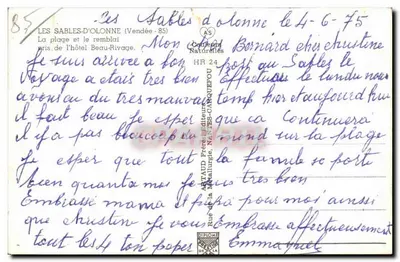 85
Les Sables d olonne le 4-6-75
LES SABLES-D'OLONNE (Vendée - 85)
La plage et le remblai
pris de l'hôtel Beau-Rivage.
Couleurs
Naturelles
HR 24
Mon cher Bernard cher christine
Je suis arrivée a bon port au Sables le
voyage a etait tres bien effectuer le lundi nous
avons eu du tres mauvais temp hier et aujourd hui
il fait beau je esper que ca Continuera
il y a pas beaucoup de mond sur la plage
je esper que tout la famille se porte
bien quant a moi je suis tres bien
Embrasse mama et papa pour moi ainsi
que christine je vous embrasse affectueusement
tout les 4 ton peper Emmanuel